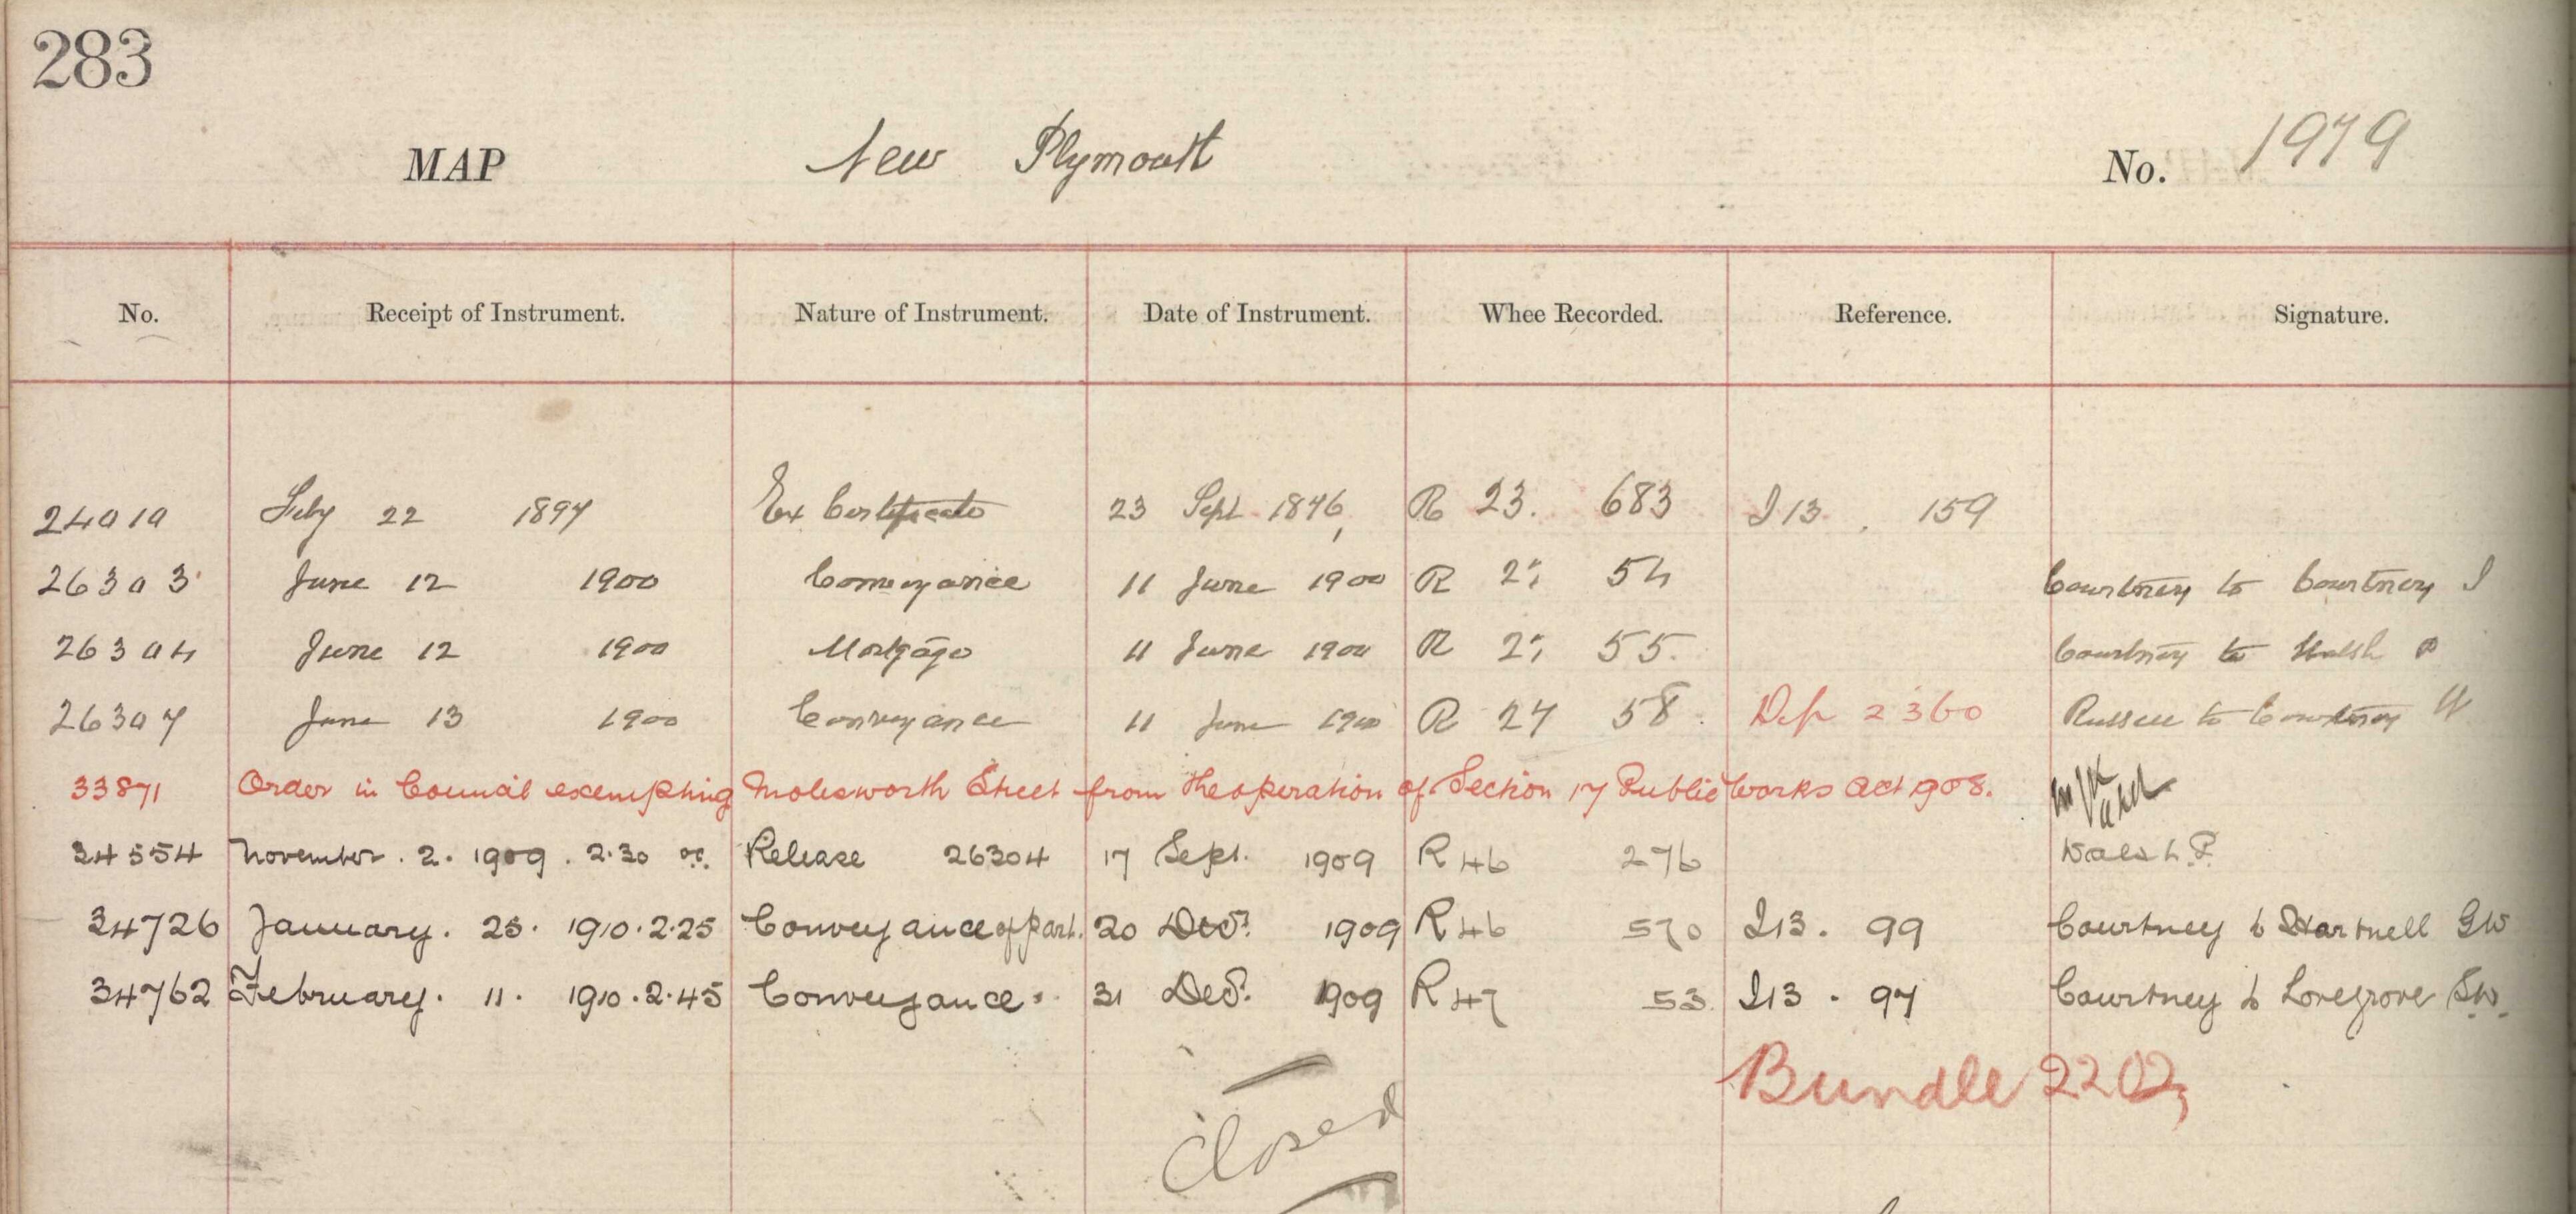 283
MAP New Plymouth No. 1979
No. Receipt of Instrument. Nature of Instrument. Date of Instrument. Whee Recorded. Reference. Signature.
24019 Feby 22 1897 Ex Certificate 23 Sept 1876 R 23. 683 I 13. 159
26303 June 12 1900 Conveyance 11 June 1900 R 27 54 Courtney to Courtney I
26304 June 12 1900 Mortgage 11 June 1900 R 27 55. Courtney to Walsh P
26307 June 13 1900 Conveyance 11 June 1900 R 27 58. Dep 2360 Russell to Courtney W
33871 Order in Council exempting Molesworth Street from the operation of Section 17 Public Works Act 1908.
34554 November. 2. 1909. 2.30 oc. Release 26304 17 Sept. 1909 R 46 276 Walsh. P.
34726 January. 25. 1910. 2.25 Conveyance of part. 20 Decr. 1909 R 46 570 I 13. 99 Courtney to Hartnell GW
34762 February. 11. 1910. 2.45 Conveyance. 31 Decr. 1909 R 47 53. I 13. 97 Courtney to Lovegrove S.W.
Bundle 2202
Closed